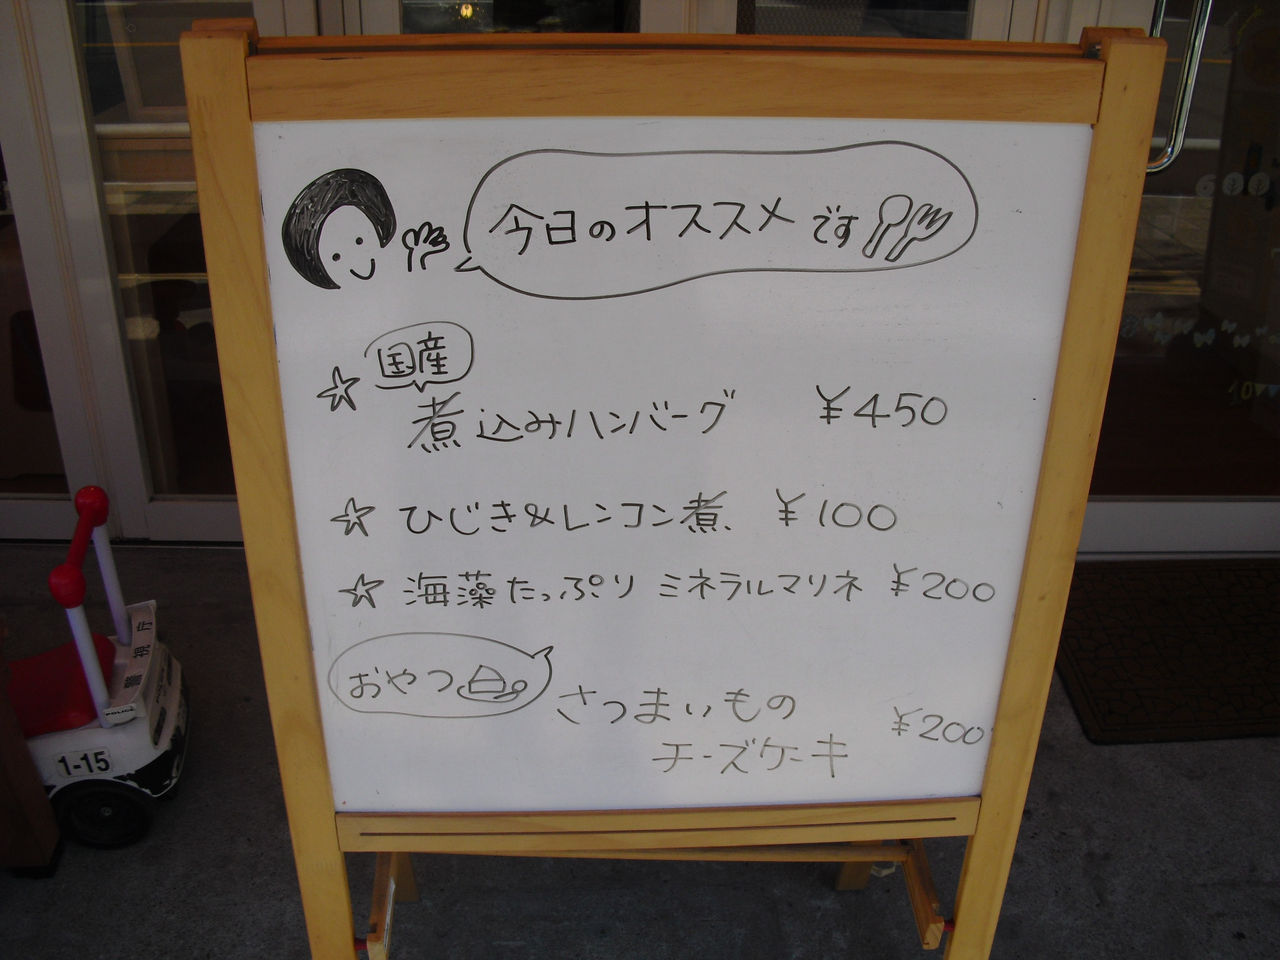 今日のオススメです
国産
☆ 煮込みハンバーグ ¥450
☆ ひじき&レンコン煮 ¥100
☆ 海藻たっぷり ミネラルマリネ ¥200
おやつ
さつまいもの
チーズケーキ ¥200
警視庁
POLICE
1-15